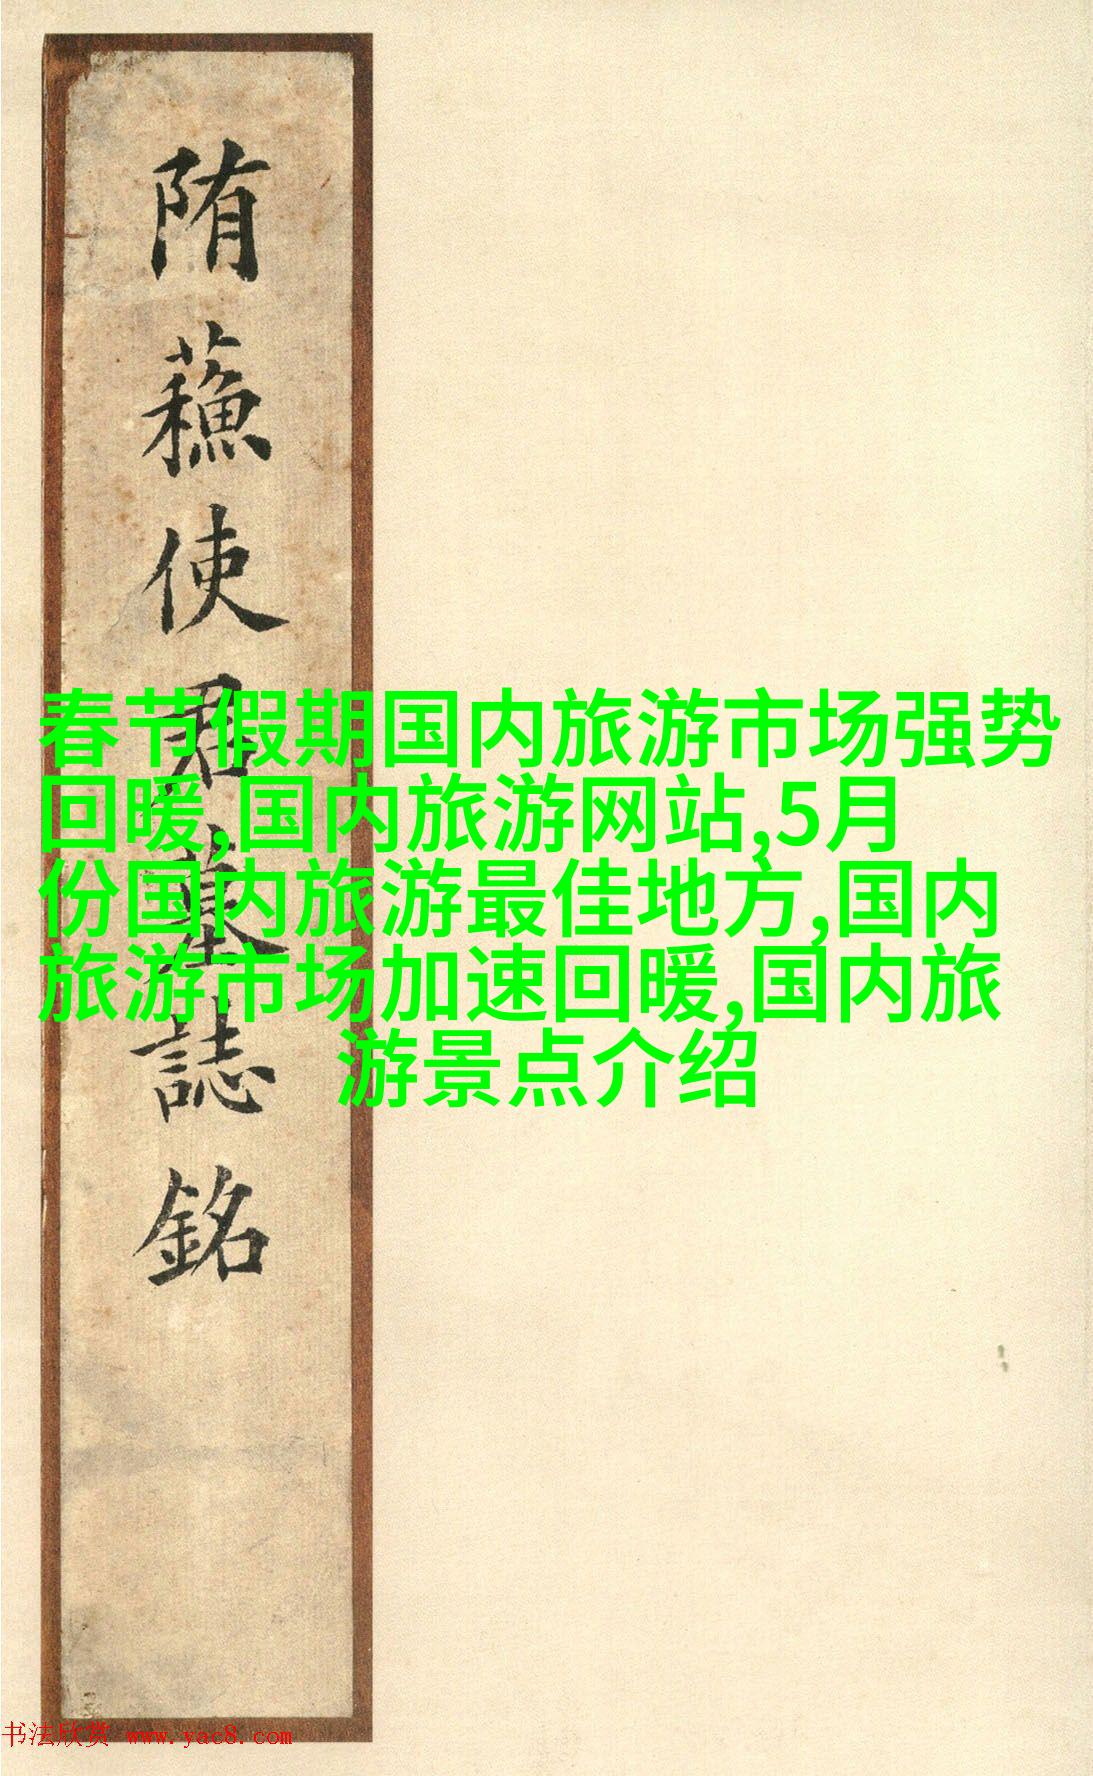 隋蘓使君墓誌銘
春节假期国内旅游市场强势
回暖,国内旅游网站,5月
份国内旅游最佳地方,国内
旅游市场加速回暖,国内旅
游景点介绍
书法欣赏 www.yac8.com